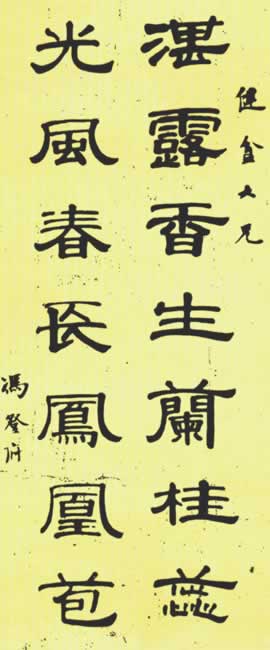 大兄
湛露香生蘭桂蕊
光風春長鳳凰苞
馮登府